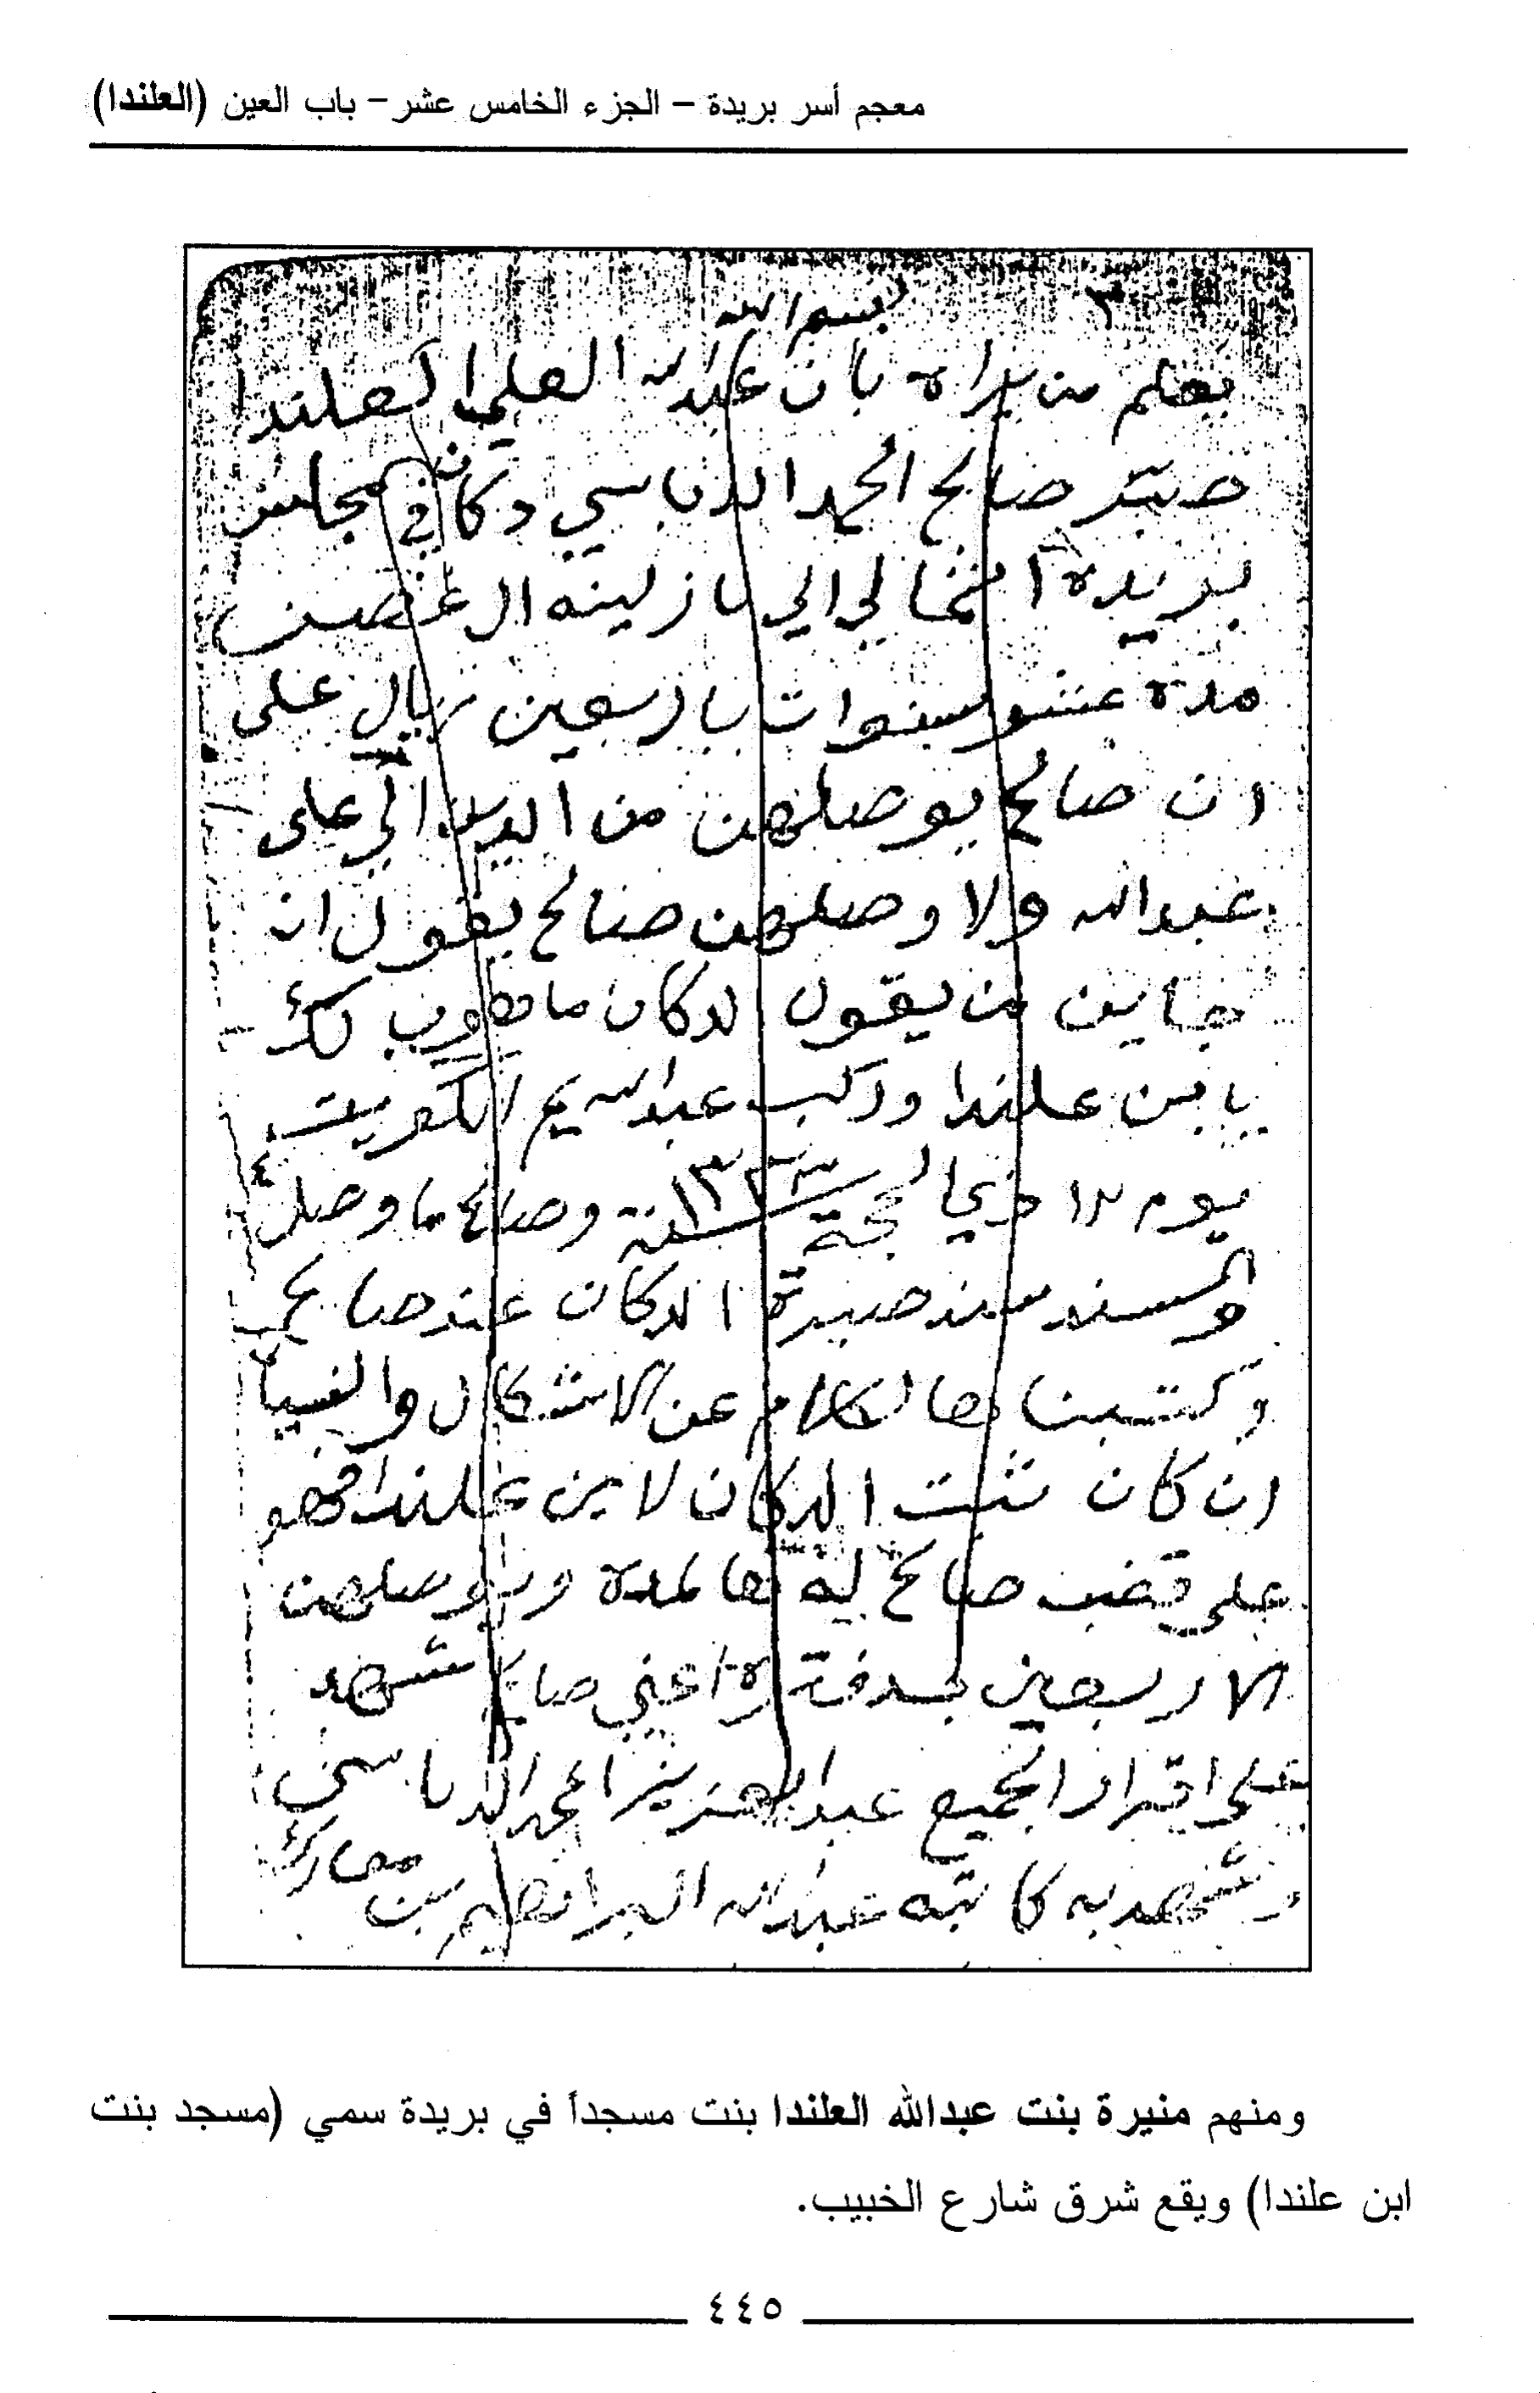 معجم أسر بريدة – الجزء الخامس عشر – باب العين (العلندا)
بسم الله
يعلم من يراه بان عبدالله العلي العلندا
صبّر صالح المحمد الدباسي دكان في مجلس
بريدة الشمالي الي نازلينه ال غصن
مدة عشر سنوات باربعين ريال على
ان صالح يوصلهن من الدين الي على
عبدالله ولا وصلهن صالح يقول انه
جاين من يقول الدكان ما هوب لك
يا بن علندا وركب عبدالله يم الكويت
يوم ١٣ ذي الحجة سنة ١٣٣٣ وصالح ما وصل
والسند سند صبرة الدكان عند صالح
وكتبنا هالكلام عن الاشكال والنسيا
ان كان ثبت الدكان لابن علندا فهو
على قضب صالح ليه هالمده ويوصلهن
الاربعين لدفتره اعني صالح شهد
على اقرار الجميع عبدالعزيز المحمد الدباسي
وشهد به كاتبه عبدالله البراهيم بن معارك
ومنهم منيرة بنت عبدالله العلندا بنت مسجداً في بريدة سمي (مسجد بنت
ابن علندا) ويقع شرق شارع الخبيب.
٤٤٥